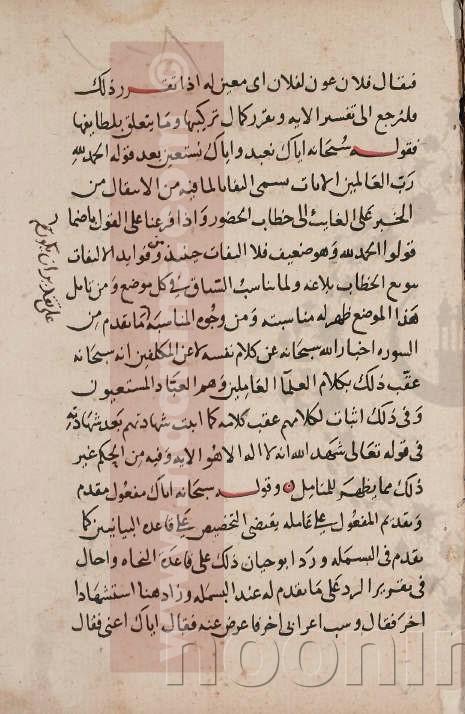 فيقال فلان عون لفلان اي معين له اذا تقرر ذلك
فلنرجع الى تفسير الايه ونقرر كمال تركيبها وما يتعلق بلطايفها
فقوله سبحانه اياك نعبد واياك نستعين بعد قوله الحمد لله
رب العالمين الايات يسمى التفاتا لما فيه من الانتقال من
الخبر على الغايب الى خطاب الحضور واذا فرعنا على القول باضمار
قولوا الحمد لله وهو ضعيف فلا التفات حينئذ وفوايد الالتفات
تنويع الخطاب بلاغه ولما يناسب السياق في كل موضع ومن تامل
هذا الموضع ظهر له مناسبته ومن وجوه المناسبة لما تقدم من
السوره اخبار الله سبحانه عن كلام نفسه لا عن المكلفين انه سبحانه
عقب ذلك بكلام العلما العاملين وهم العباد المستعينون
وفي ذلك اثبات لكلامهم عقب كلامه كما اثبت شهادتهم بعد شهادته
في قوله تعالى شهد الله انه لا اله الا هو الايه وفيه من الحكم غير
ذلك مما يظهر للمتامل وقوله سبحانه اياك مفعول مقدم
وتقديم المفعول على عامله يقتضي التخصيص على قاعده البيانيين كما
تقدم في البسمله ورد ابو حيان ذلك على قاعدة النحاه واحال
في تقرير الرد على ما تقدم له عند البسمله وزاد هنا استشهادا
اخر فقال وسب اعرابي اخر فاعرض عنه فقال اياك اعني فقال
على تقدير ان يكون
noonin